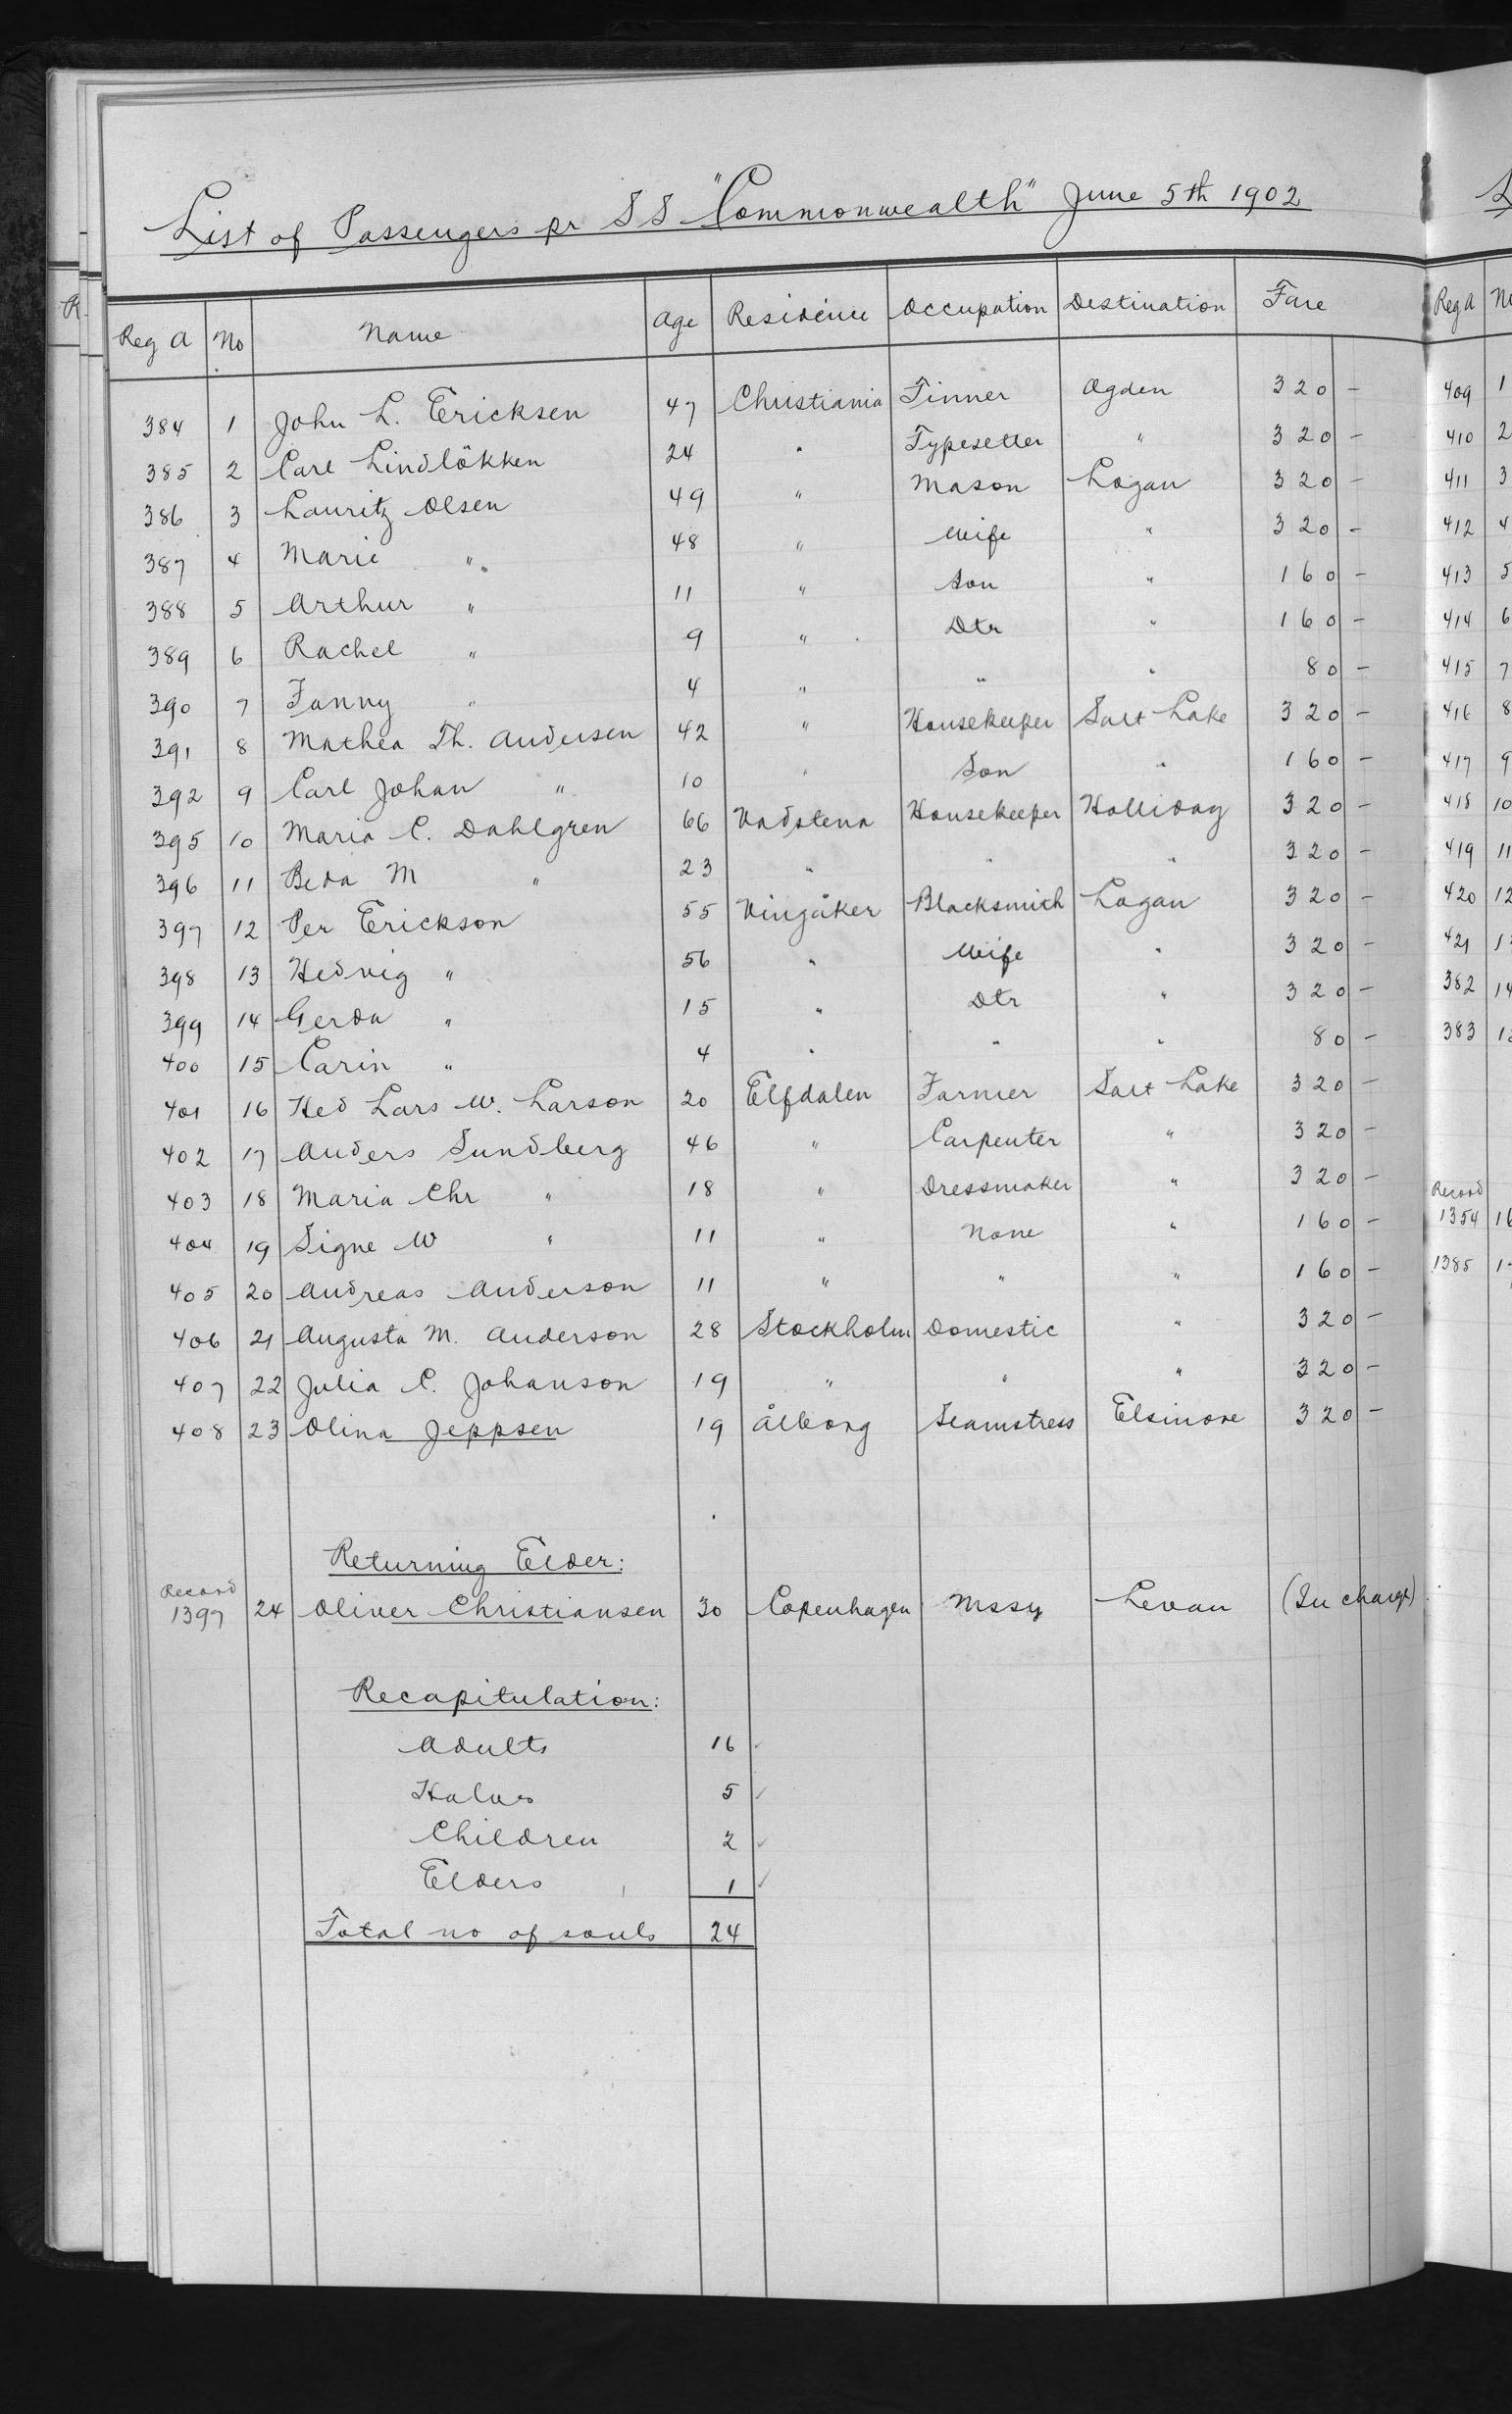 List of Passengers pr SS "Commonwealth" June 5th 1902
Reg A No Name Age Residence Occupation Destination Fare
384 1 John L. Ericksen 47 Christiania Tinner Ogden 320 -
385 2 Carl Lindlökken 24 " Typesetter " 320 -
386 3 Lauritz Olsen 49 " Mason Logan 320 -
387 4 Marie " 48 " Wife " 320 -
388 5 Arthur " 11 " Son " 160 -
389 6 Rachel " 9 " Dtr " 160 -
390 7 Fanny " 4 " " " 80 -
391 8 Mathea Th. Andersen 42 " Housekeeper Salt Lake 320 -
392 9 Carl Johan " 10 " Son " 160 -
395 10 Maria C. Dahlgren 66 Vadstena Housekeeper Holliday 320 -
396 11 Beda M " 23 " " " 320 -
397 12 Per Erickson 55 Vingåker Blacksmith Logan 320 -
398 13 Hedvig " 56 " Wife " 320 -
399 14 Gerda " 15 " Dtr " 320 -
400 15 Carin " 4 " " " 80 -
401 16 Hed Lars W. Larson 20 Elfdalen Farmer Salt Lake 320 -
402 17 Anders Sundberg 46 " Carpenter " 320 -
403 18 Maria Chr " 18 " Dressmaker " 320 -
404 19 Signe W " 11 " None " 160 -
405 20 Andreas Anderson 11 " " " 160 -
406 21 Augusta M. Anderson 28 Stockholm Domestic " 320 -
407 22 Julia C. Johanson 19 " " " 320 -
408 23 Olina Jeppsen 19 Ålborg Seamstress Elsinore 320 -
Returning Elder:
Record
1397 24 Oliver Christiansen 30 Copenhagen Missy Levan (In charge)
Recapitulation:
Adults 16 ✓
Halves 5 ✓
Children 2 ✓
Elders 1 ✓
Total no of souls 24
R
L
Reg A No
409 1
410 2
411 3
412 4
413 5
414 6
415 7
416 8
417 9
418 10
419 11
420 12
421
382 14
383
Record
1354 16
1385